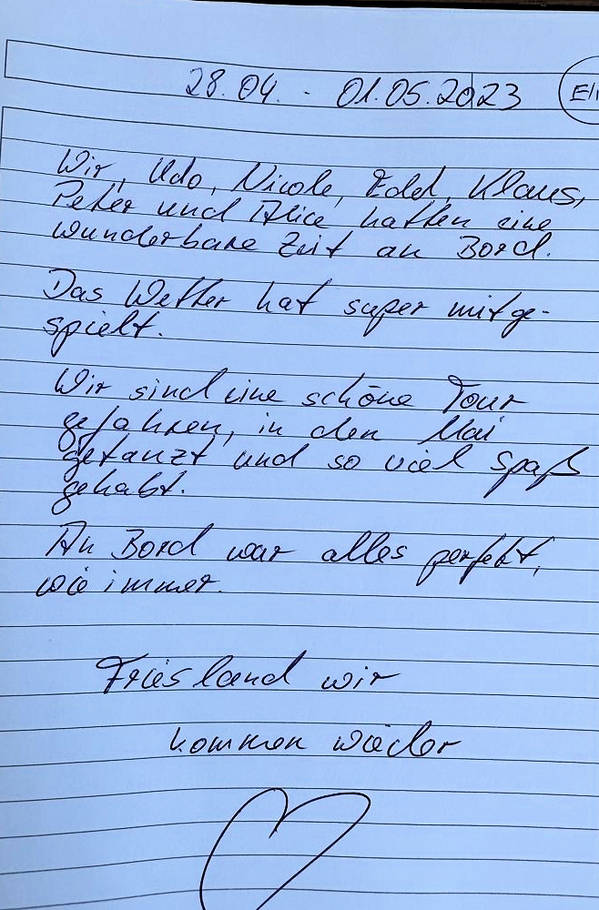 28.04. - 01.05.2023
Eli
Wir, Udo, Nicole, Edel, Klaus,
Peter und Alice hatten eine
wunderbare Zeit an Bord.
Das Wetter hat super mitge-
spielt.
Wir sind eine schöne Tour
gefahren, in den Mai
getanzt und so viel Spaß
gehabt.
An Bord war alles perfekt,
wie immer.
Friesland wir
kommen wieder